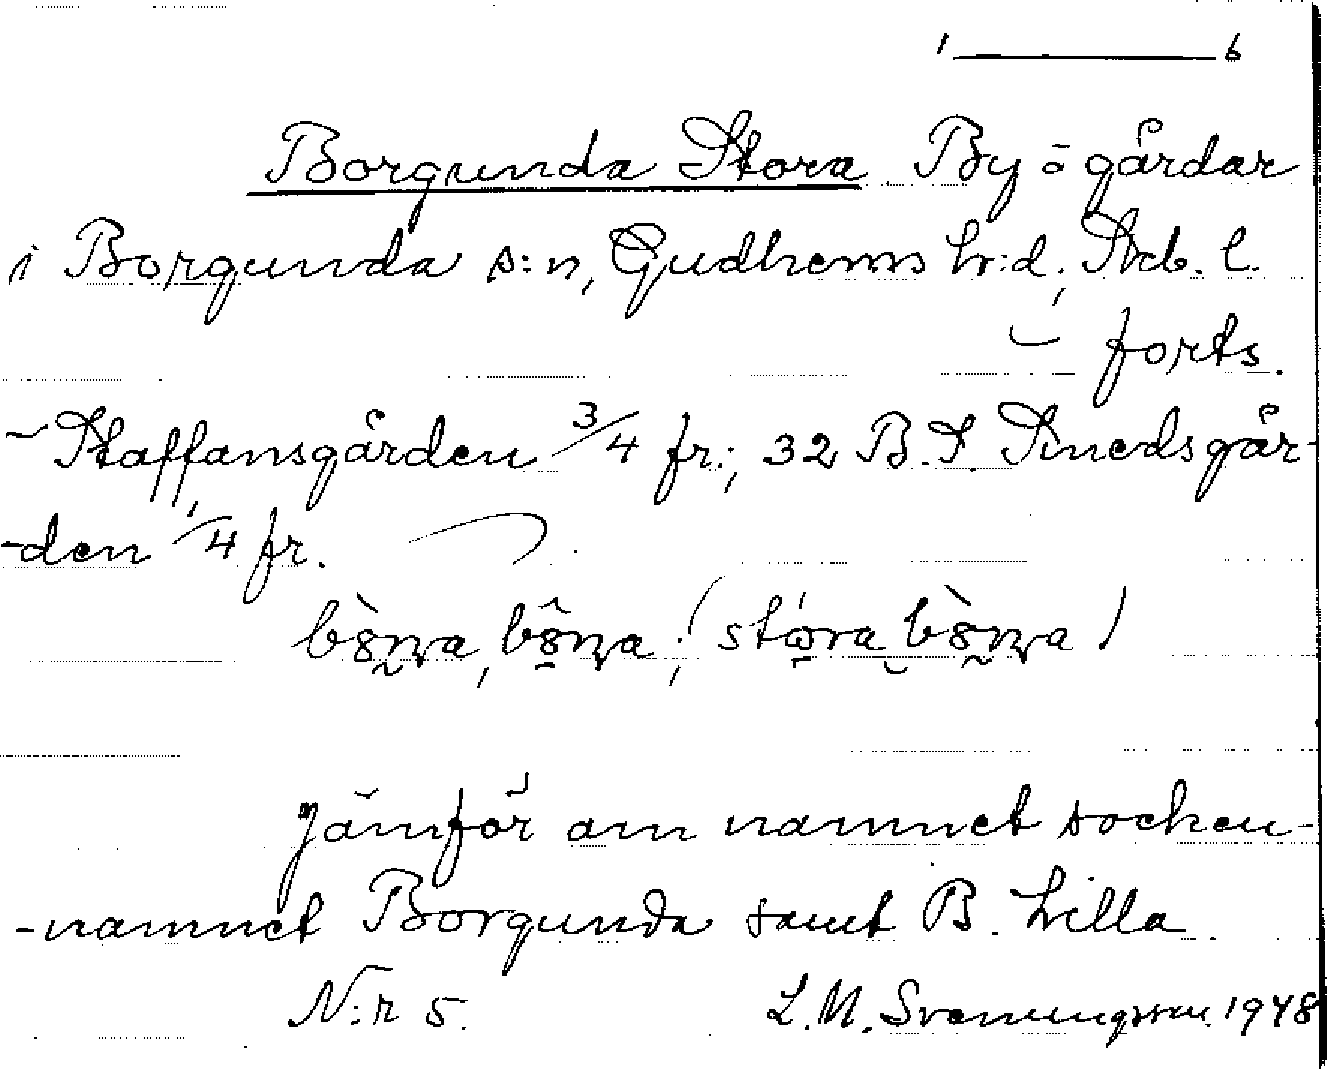 1 ——— 6
Borgunda Stora By o gårdar
i Borgunda s:n, Gudhems hr:d, Skb. l.
forts.
- Staffansgården 3/4 fr.; 32 B. S. Smedsgår-
-den 1/4 fr.
Jämför om namnet socken-
-namnet Borgunda samt B. Lilla
N:r 5. L. M. Svenungsson 1948